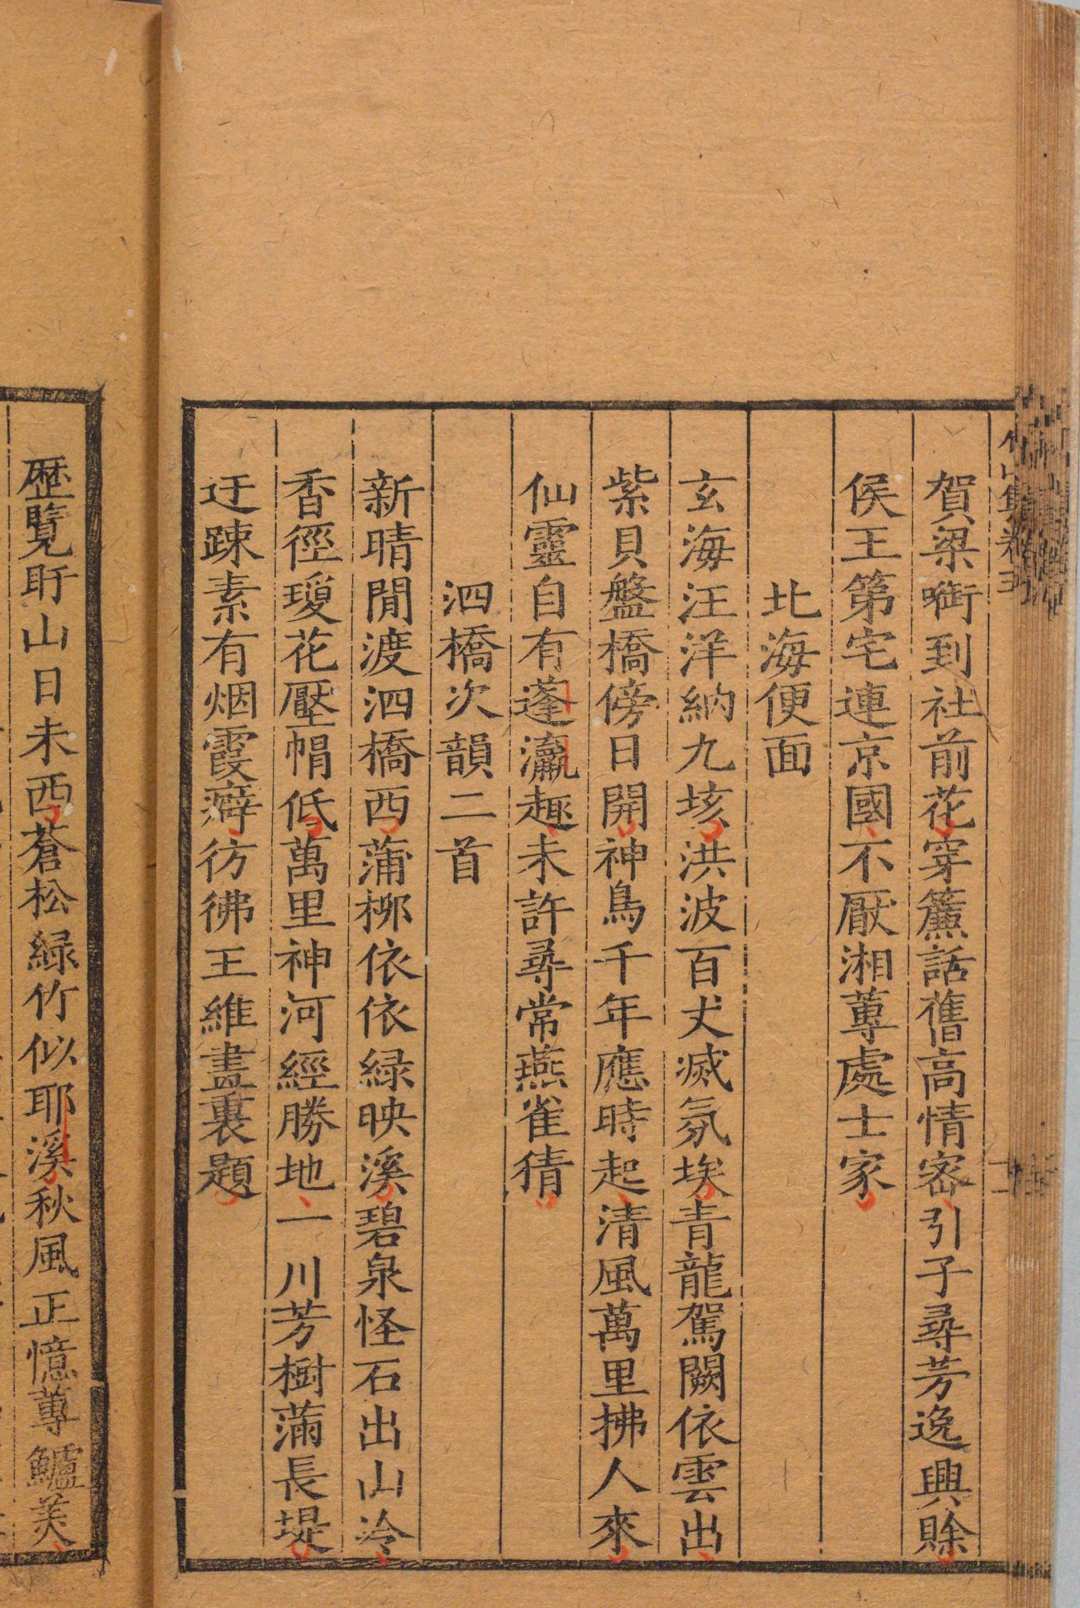 賀梁啣到社前花穿簾話舊高情密引子尋芳逸興賒
侯王第宅連京國不厭湘蓴處士家
北海便面
玄海汪洋納九垓洪波百丈滅氛埃青龍駕闕依雲出
紫貝盤橋傍日開神鳥千年應時起清風萬里拂人來
仙靈自有蓬瀛趣未許尋常燕雀猜
泗橋次韻二首
新晴閒渡泗橋西蒲柳依依緑映溪碧泉怪石出山冷
香徑瓊花壓帽低萬里神河經勝地一川芳樹滿長堤
迂踈素有烟霞癖彷彿王維畫裏題
歷覽盱山日未西蒼松緑竹似耶溪秋風正憶蓴鱸美